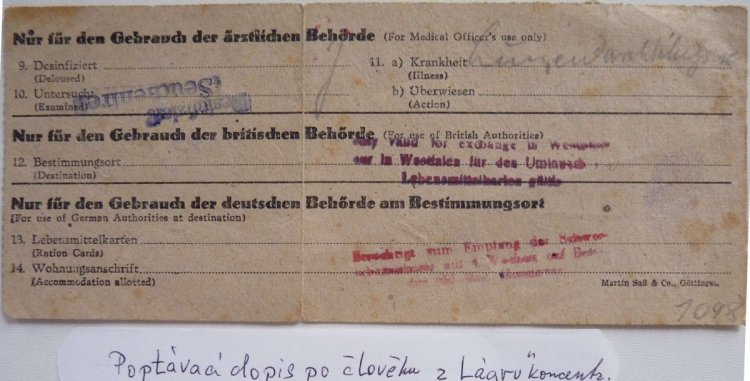 Nur für den Gebrauch der ärztlichen Behörde (For Medical Officer's use only)
9. Desinfiziert
(Deloused)
10. Untersucht
(Examined)
11. a) Krankheit
(Illness)
b) Überwiesen
(Action)
Desinfiziert
Seuchenfrei
Nur für den Gebrauch der britischen Behörde (For use of British Authorities)
12. Bestimmungsort
(Destination)
only valid for exchange in
nur in Westfalen für den Umtausch
Lebensmittelkarten gültig
Nur für den Gebrauch der deutschen Behörde am Bestimmungsort
(For use of German Authorities at destination)
13. Lebensmittelkarten
(Ration Cards)
14. Wohnungsanschrift
(Accommodation allotted)
Berechtigt zum Empfang der
auf 4 Wochen auf
Martin Saß & Co., Göttingen.
1098
Poptávací dopis po člověku z Lágru "koncentr.